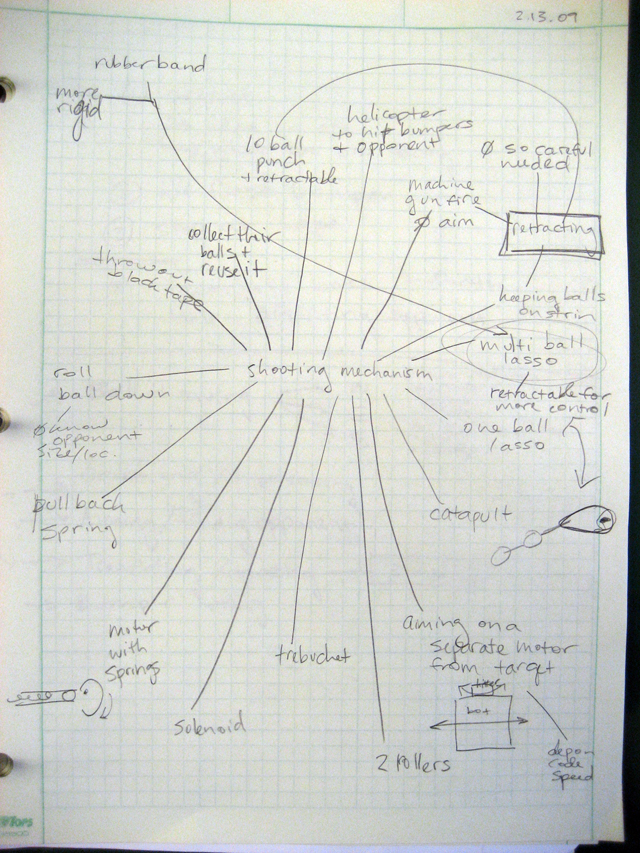 2.13.09
rubberband
more
rigid
10 ball
punch
+ retractable
helicopter
to hit bumpers
+ opponent
Ø so careful
needed
machine
gun fire
Ø aim
retracting
collect their
balls +
reuse it
throw out
black tape
keeping balls
on strin
multi ball
lasso
shooting mechanism
retractable for
more control
roll
ball down
Ø know
opponent
size/loc.
one ball
lasso
pull back
spring
catapult
motor
with
springs
trebuchet
aiming on a
separate motor
from target
solenoid
bot
2 rollers
code
speed
TOPS